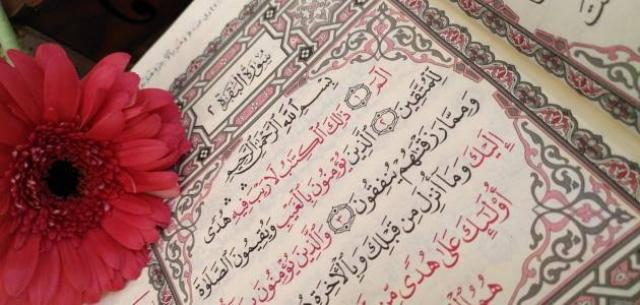 سُورَةُ البَقَرَةِ ٢
بِسْمِ اللَّهِ الرَّحْمَٰنِ الرَّحِيمِ
الٓمٓ ١ ذَٰلِكَ الْكِتَابُ لَا رَيْبَ فِيهِ هُدًى
لِلْمُتَّقِينَ ٢ الَّذِينَ يُؤْمِنُونَ بِالْغَيْبِ وَيُقِيمُونَ الصَّلَاةَ
وَمِمَّا رَزَقْنَاهُمْ يُنْفِقُونَ ٣ وَالَّذِينَ يُؤْمِنُونَ
إِلَيْكَ وَمَا أُنْزِلَ مِنْ قَبْلِكَ وَبِالْآخِرَةِ
أُولَٰئِكَ عَلَىٰ هُدًى مِنْ
هُمُ